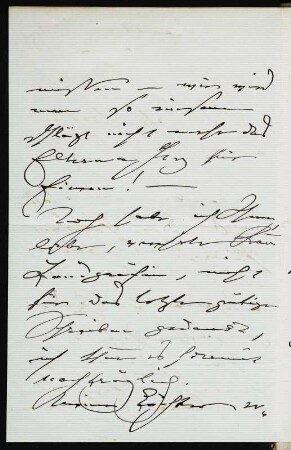 müssen – wir wird
nun so einsam
schlägt nicht mehr das
für
! —
Noch habe ich Ihnen
liebe, verehrte Frau
Landgräfin, nicht
für das letzte gütige
Schreiben gedankt,
ich thue es hiermit
nachträglich.
Meine Töchter u.